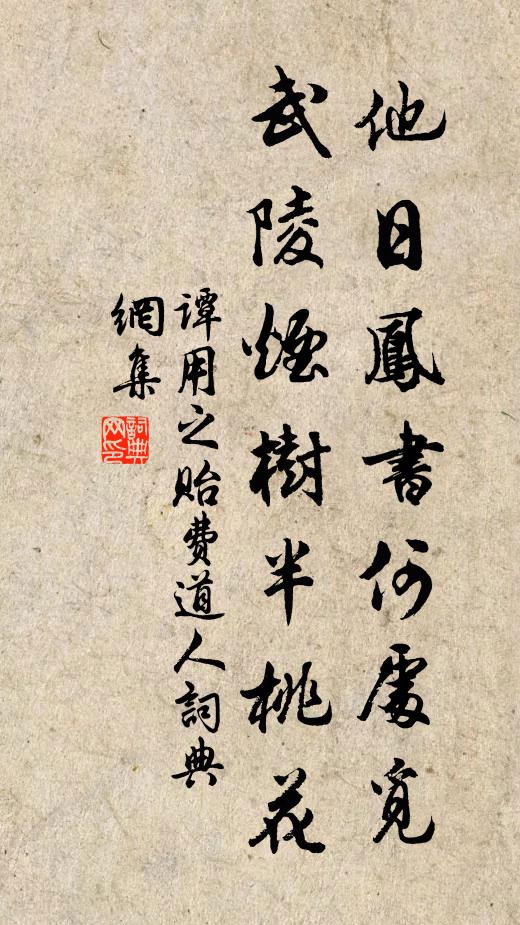 他日鳳書何處覓
武陵煙樹半桃花
譚用之貽費道人詞典
網集
詞典
网印